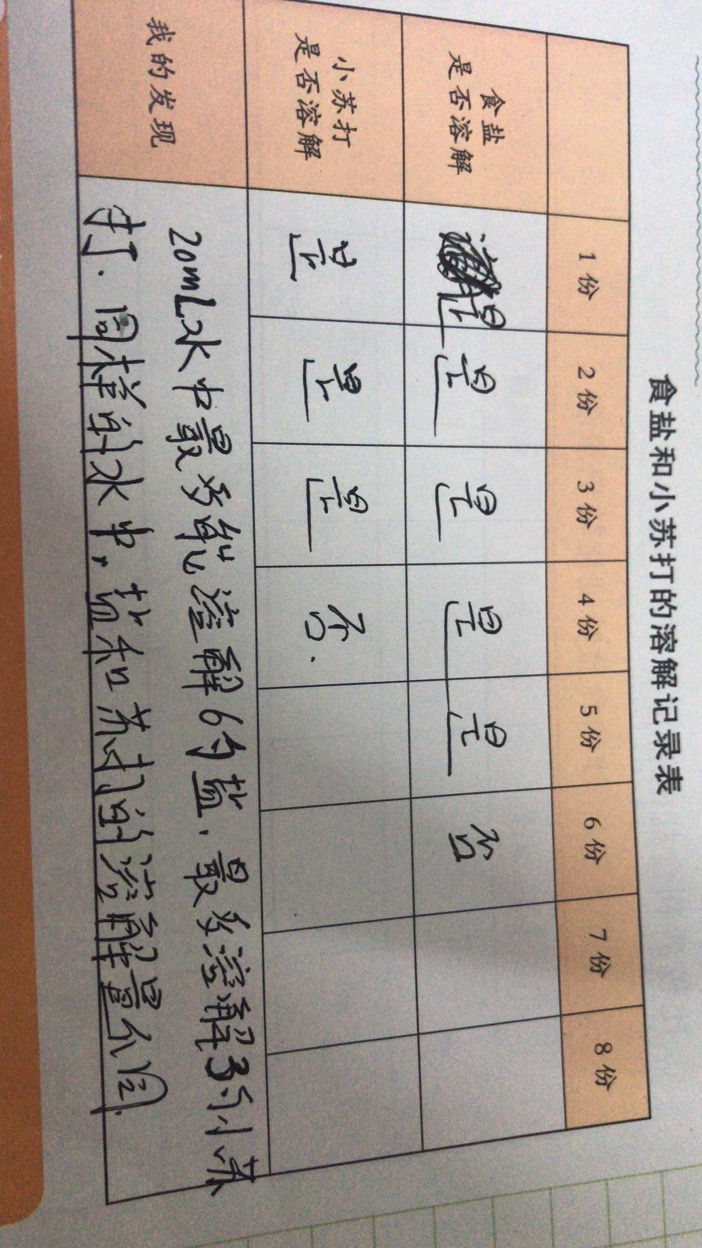 食盐和小苏打的溶解记录表
1份 2份 3份 4份 5份 6份 7份 8份
食盐
是否溶解 是 是 是 是 是 否
小苏打
是否溶解 是 是 是 否.
我的发现
20mL水中最多能溶解6份盐,最多溶解3份小苏
打.同样的水中,盐和苏打的溶解量不同.